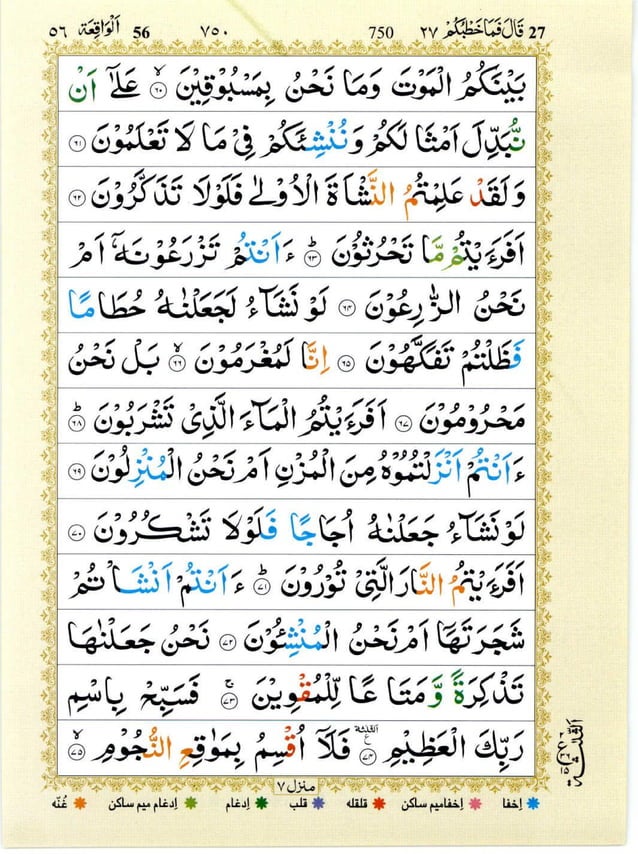 ٥٦ اَلْوَاقِعَة 56 ٧٥٠ 750 قَالَ فَمَا خَطْبُكُمْ ٢٧ 27
بَيْنَكُمُ الْمَوْتَ وَمَا نَحْنُ بِمَسْبُوْقِيْنَ ۙ‏ ﴿٦٠﴾ عَلٰٓى اَنْ
نُّبَدِّلَ اَمْثَا لَكُمْ وَنُنْشِئَكُمْ فِىْ مَا لَا تَعْلَمُوْنَ ﴿٦١﴾
وَلَقَدْ عَلِمْتُمُ النَّشْاَةَ الْاُوْلٰى فَلَوْلَا تَذَكَّرُوْنَ ﴿٦٢﴾
اَفَرَءَيْتُمْ مَّا تَحْرُثُوْنَ ؕ ﴿٦٣﴾ ءَاَنْتُمْ تَزْرَعُوْنَهٗۤ اَمْ
نَحْنُ الزّٰرِعُوْنَ ﴿٦٤﴾ لَوْ نَشَآءُ لَجَعَلْنٰهُ حُطَامًا
فَظَلْتُمْ تَفَكَّهُوْنَ ﴿٦٥﴾ اِنَّا لَمُغْرَمُوْنَ ۙ ﴿٦٦﴾ بَلْ نَحْنُ
مَحْرُوْمُوْنَ ﴿٦٧﴾ اَفَرَءَيْتُمُ الْمَآءَ الَّذِىْ تَشْرَبُوْنَ ؕ ﴿٦٨﴾
ءَاَنْتُمْ اَنْزَلْتُمُوْهُ مِنَ الْمُزْنِ اَمْ نَحْنُ الْمُنْزِلُوْنَ ﴿٦٩﴾
لَوْ نَشَآءُ جَعَلْنٰهُ اُجَاجًا فَلَوْلَا تَشْكُرُوْنَ ﴿٧٠﴾
اَفَرَءَيْتُمُ النَّارَ الَّتِىْ تُوْرُوْنَ ؕ ﴿٧١﴾ ءَاَنْتُمْ اَنْشَاْتُمْ
شَجَرَتَهَاۤ اَمْ نَحْنُ الْمُنْشِئُوْنَ ﴿٧٢﴾ نَحْنُ جَعَلْنٰهَا
تَذْكِرَةً وَّمَتَاعًا لِّلْمُقْوِيْنَ ۚ ﴿٧٣﴾ فَسَبِّحْ بِاسْمِ
رَبِّكَ الْعَظِيْمِ ﴿٧٤﴾ الثلثة ع فَلَآ اُقْسِمُ بِمَوٰقِعِ النُّجُوْمِ ۙ ﴿٧٥﴾
منزل ٧
اِخفا اِخفامیم ساکن قلقله قلب اِدغام اِدغام میم ساکن غُنّه